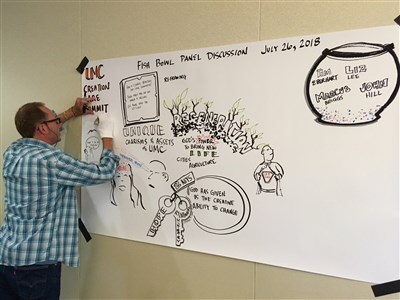 UMC
CREATION
CARE
SUMMIT
FISH BOWL PANEL DISCUSSION JULY 26, 2018
TIM
EBERHART
LIZ
LEE
MARCUS
BRIGGS
JOHN
HILL
UNIQUE
CHARISMS & ASSETS
of
UMC
REGENERATION
GOD'S POWER
TO BRING NEW
LIFE
CITIES
AGRICULTURE
BIG KEYS
HOPE
GOD HAS GIVEN
US THE CREATIVE
ABILITY TO CHANGE